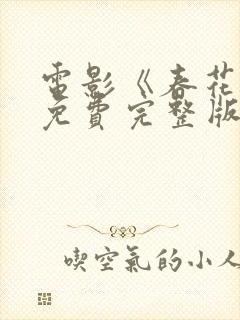 電影《春花
免費完整版
喫空氣的小人